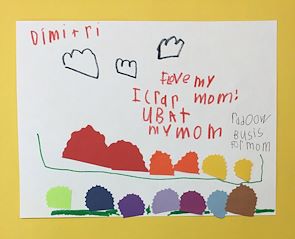 Dimitri
I love my
I crap mom!
UBAt
my mom
RAOOW
BUSIS
FOR MOM